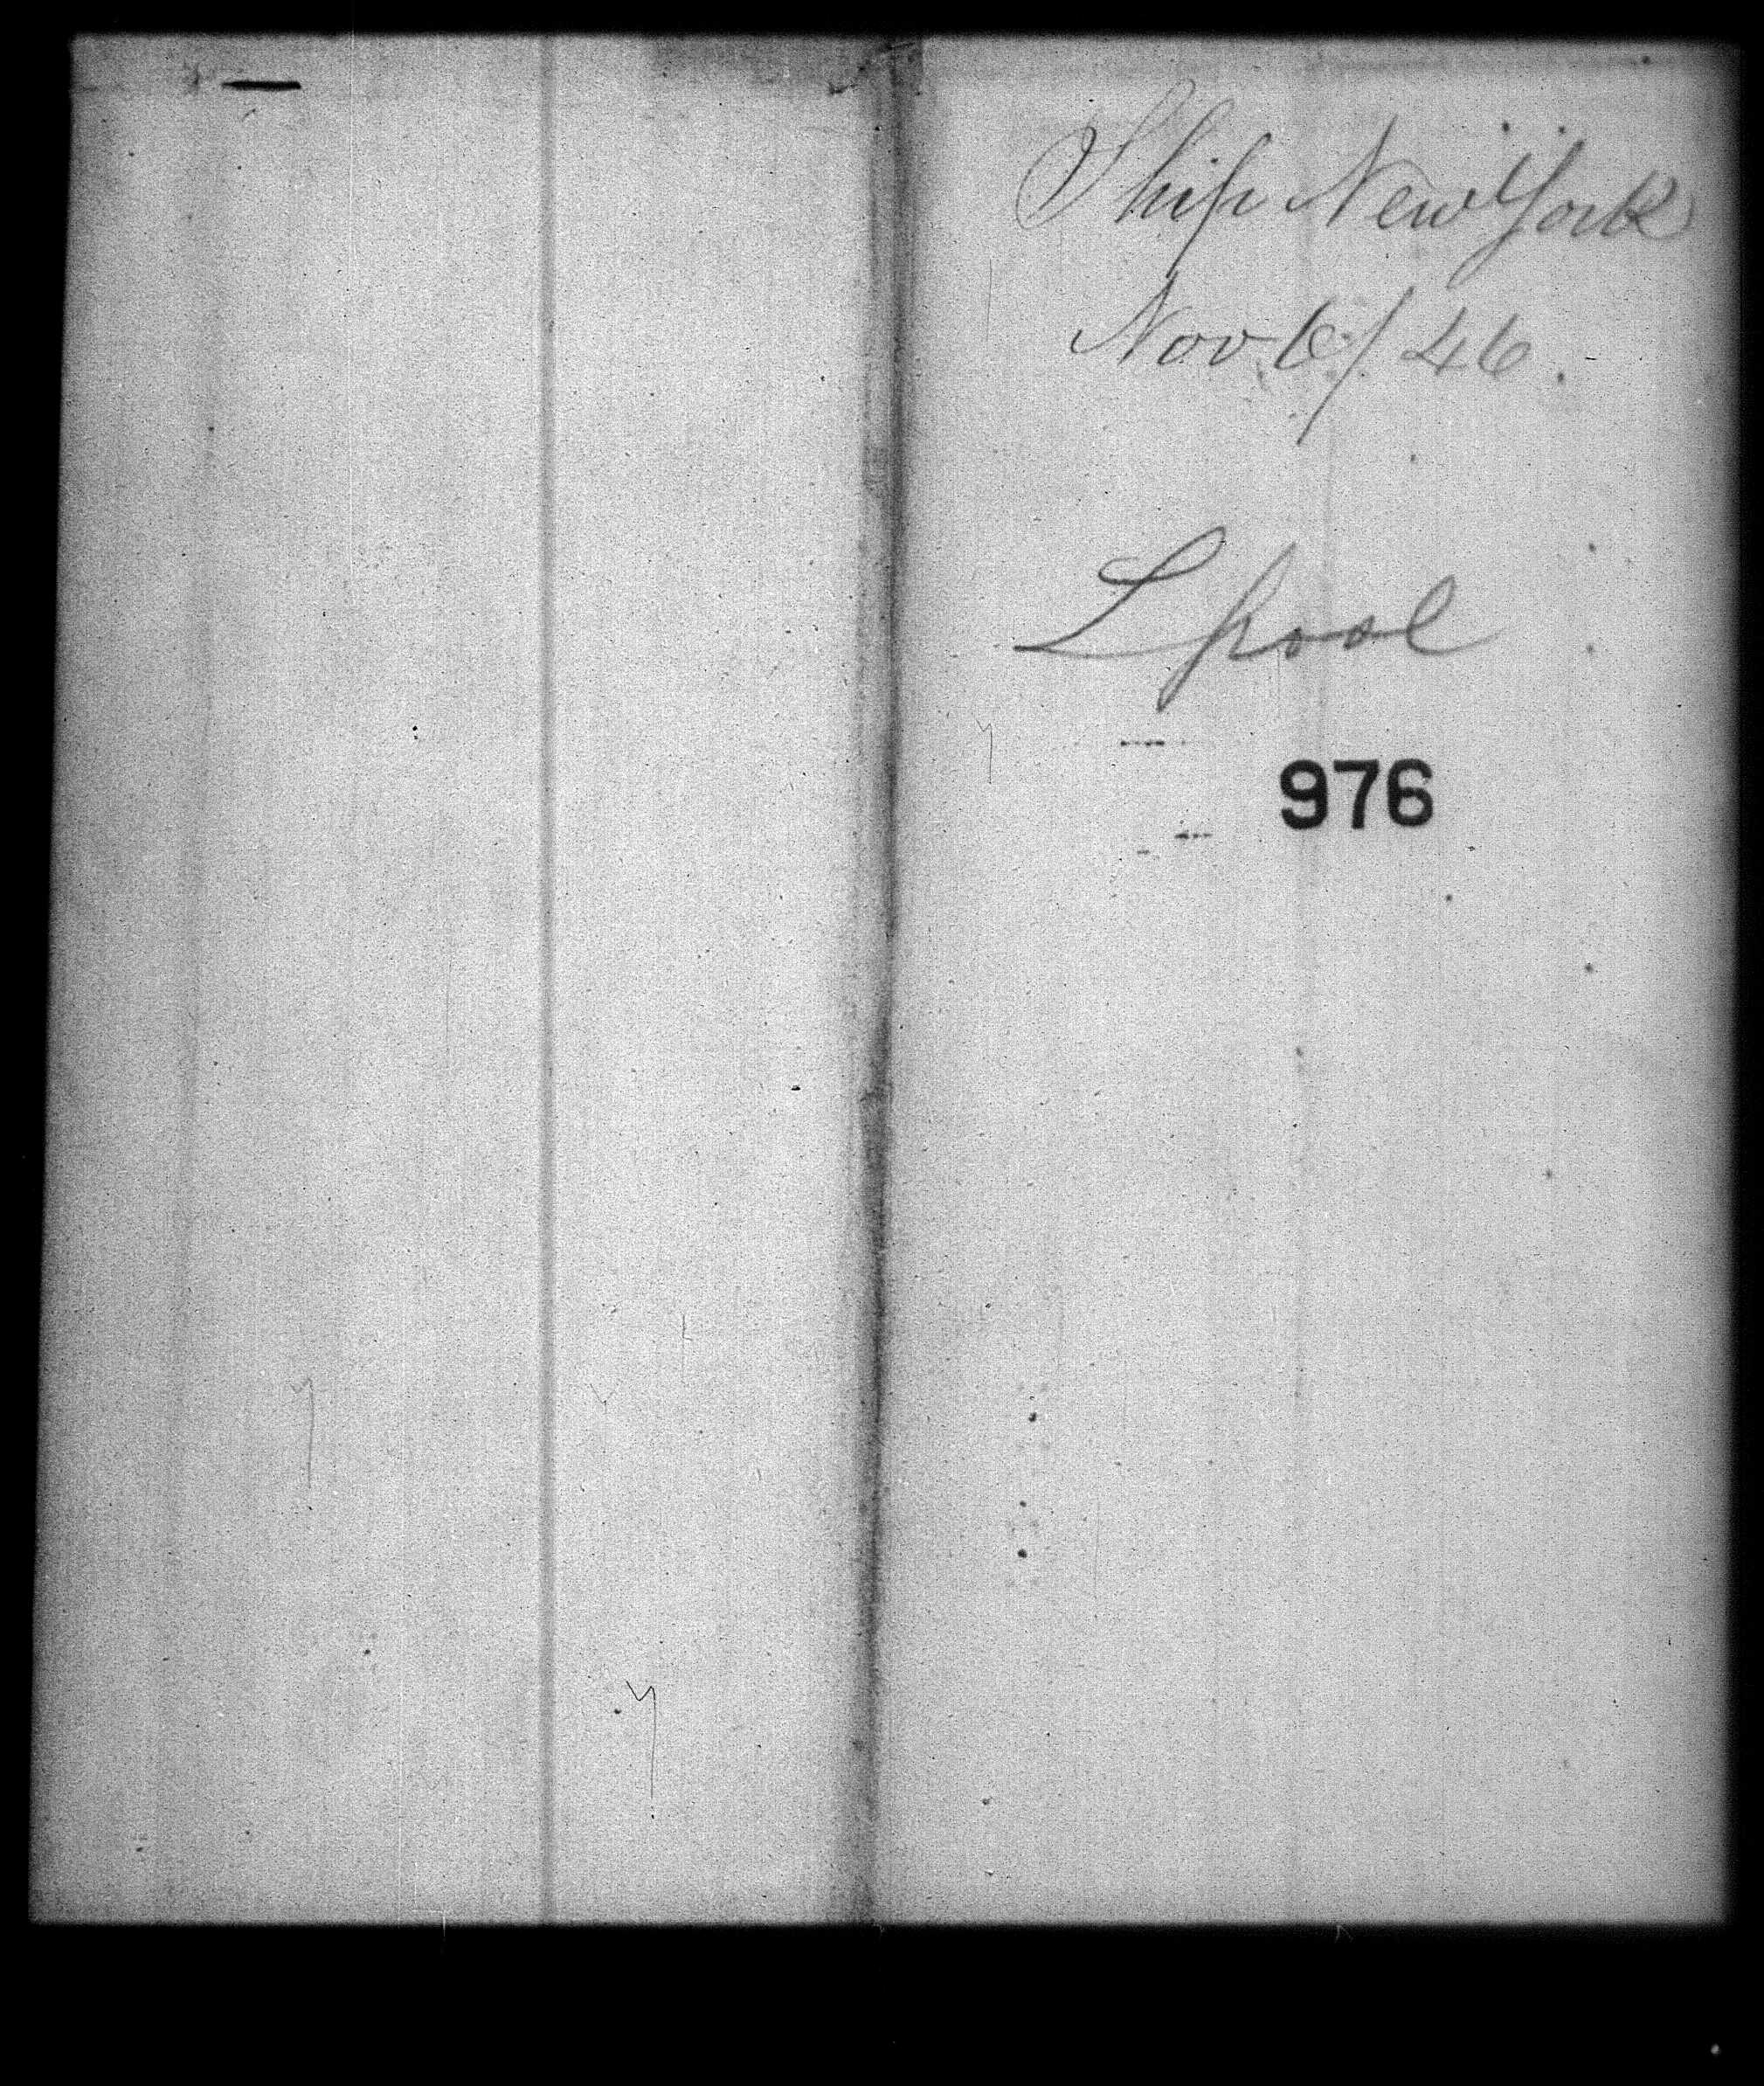 Ship New York
Nov 6/46.
Lpool
976